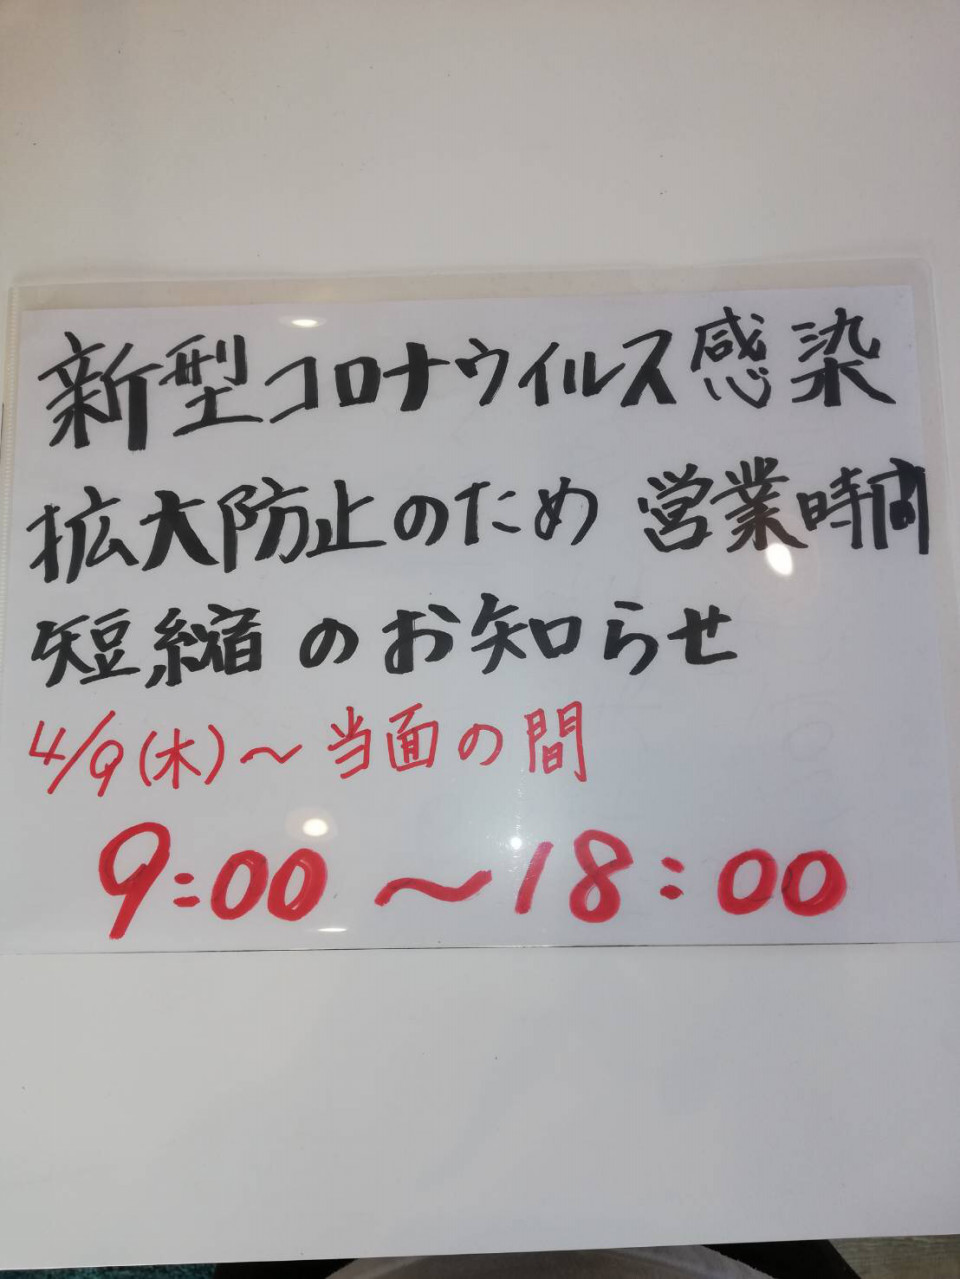 新型コロナウイルス感染
拡大防止のため 営業時間
短縮のお知らせ
4/9(木)～当面の間
9:00～18:00